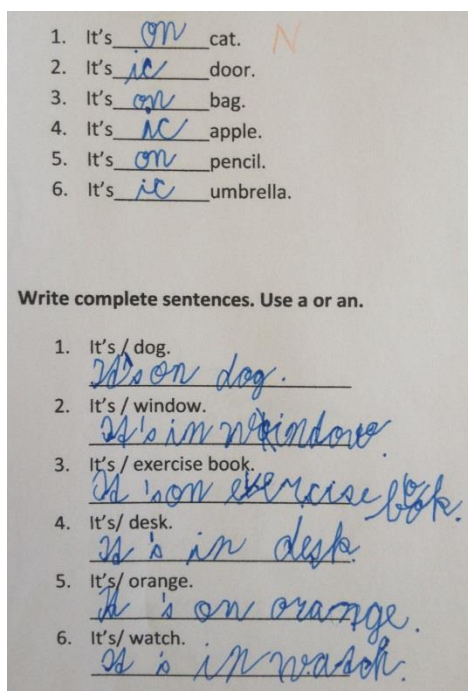 1. It's on cat. N
2. It's ic door.
3. It's on bag.
4. It's ic apple.
5. It's on pencil.
6. It's ic umbrella.
Write complete sentences. Use a or an.
1. It's / dog.
It's on dog.
2. It's / window.
It's in window.
3. It's / exercise book.
It's on exercise book.
4. It's/ desk.
It's in desk.
5. It's/ orange.
It's on orange.
6. It's/ watch.
It is in watch.